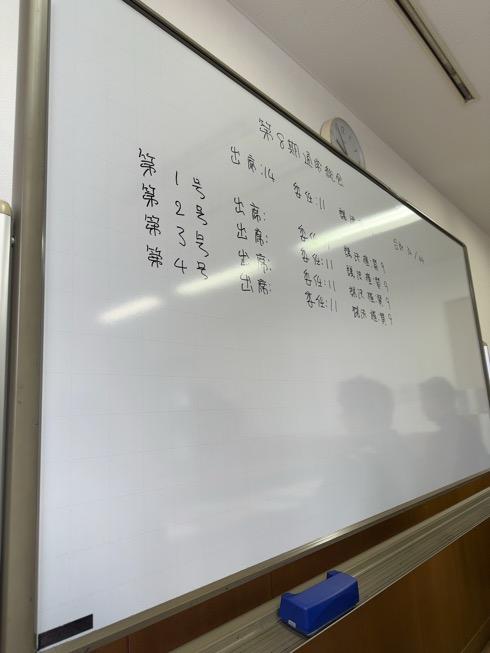 第8期通常総会
出席:14 委任:11 議決
第1号 出席: 委任:11 議決権:第9
第2号 出席: 委任:11 議決権:第9
第3号 出席: 委任:11 議決権:第9
第4号 出席: 委任:11 議決権:第9